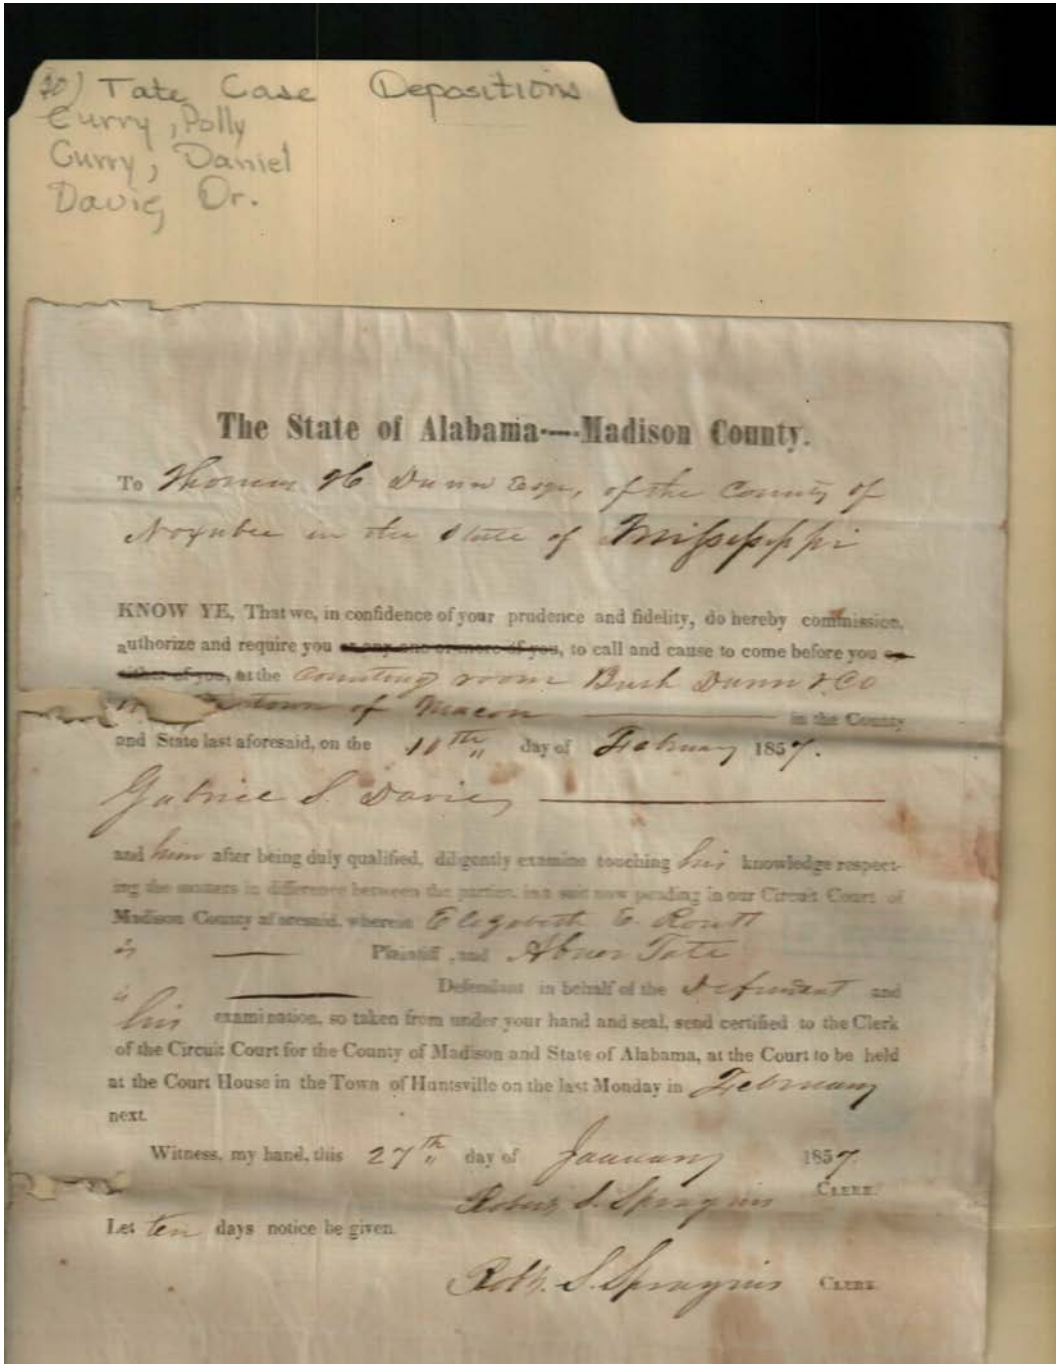 20) Tate Case Depositions
Curry, Polly
Curry, Daniel
Davis, Dr.
The State of Alabama----Madison County.
To Thomas H Dunn Esqr, of the County of
Noxubee in the State of Mississippi
KNOW YE, That we, in confidence of your prudence and fidelity, do hereby commission,
authorize and require you or any one or more of you, to call and cause to come before you or
either of you, at the Counting room Bush Dunn & Co
town of Macon in the County
and State last aforesaid, on the 10th day of February 1857.
Gabriel S. Davis
and him after being duly qualified, diligently examine touching his knowledge respect-
ing the matters in difference between the parties, in a suit now pending in our Circuit Court of
Madison County aforesaid, wherein Elizabeth E. Routt
is Plaintiff, and Abner Tate
is Defendant in behalf of the Defendant and
his examination, so taken from under your hand and seal, send certified to the Clerk
of the Circuit Court for the County of Madison and State of Alabama, at the Court to be held
at the Court House in the Town of Huntsville on the last Monday in February
next.
Witness, my hand, this 27th day of January 1857.
Robert S. Spragins CLERK.
Let ten days notice be given.
Robt. S. Spragins CLERK.